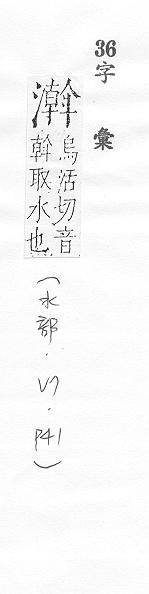 36字 彙
濣
烏活切音
斡取水也
(水部.
P41)